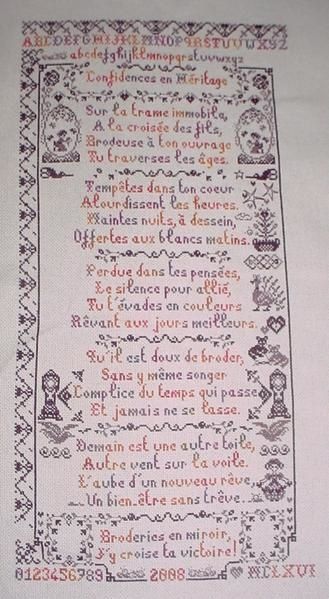 ABCDEFGHIJKLMNOPQRSTUVWXYZ
abcdefghijklmnopqrstuvwxyz
Confidences en Héritage
Sur la trame immobile,
A la croisée des fils,
Brodeuse à ton ouvrage
Tu traverses les âges.
Tempêtes dans ton coeur
Alourdissent les heures.
Maintes nuits, à dessein,
Offertes aux blancs matins.
Perdue dans tes pensées,
Le silence pour allié,
Tu t'évades en couleurs
Rêvant aux jours meilleurs.
Qu'il est doux de broder,
Sans y même songer
Complice du temps qui passe
Et jamais ne se lasse.
Demain est une autre toile,
Autre vent sur la voile.
L'aube d'un nouveau rêve,
Un bien-être sans trêve...
Broderies en miroir,
J'y croise ta victoire!
0123456789 2008 MCLXVI